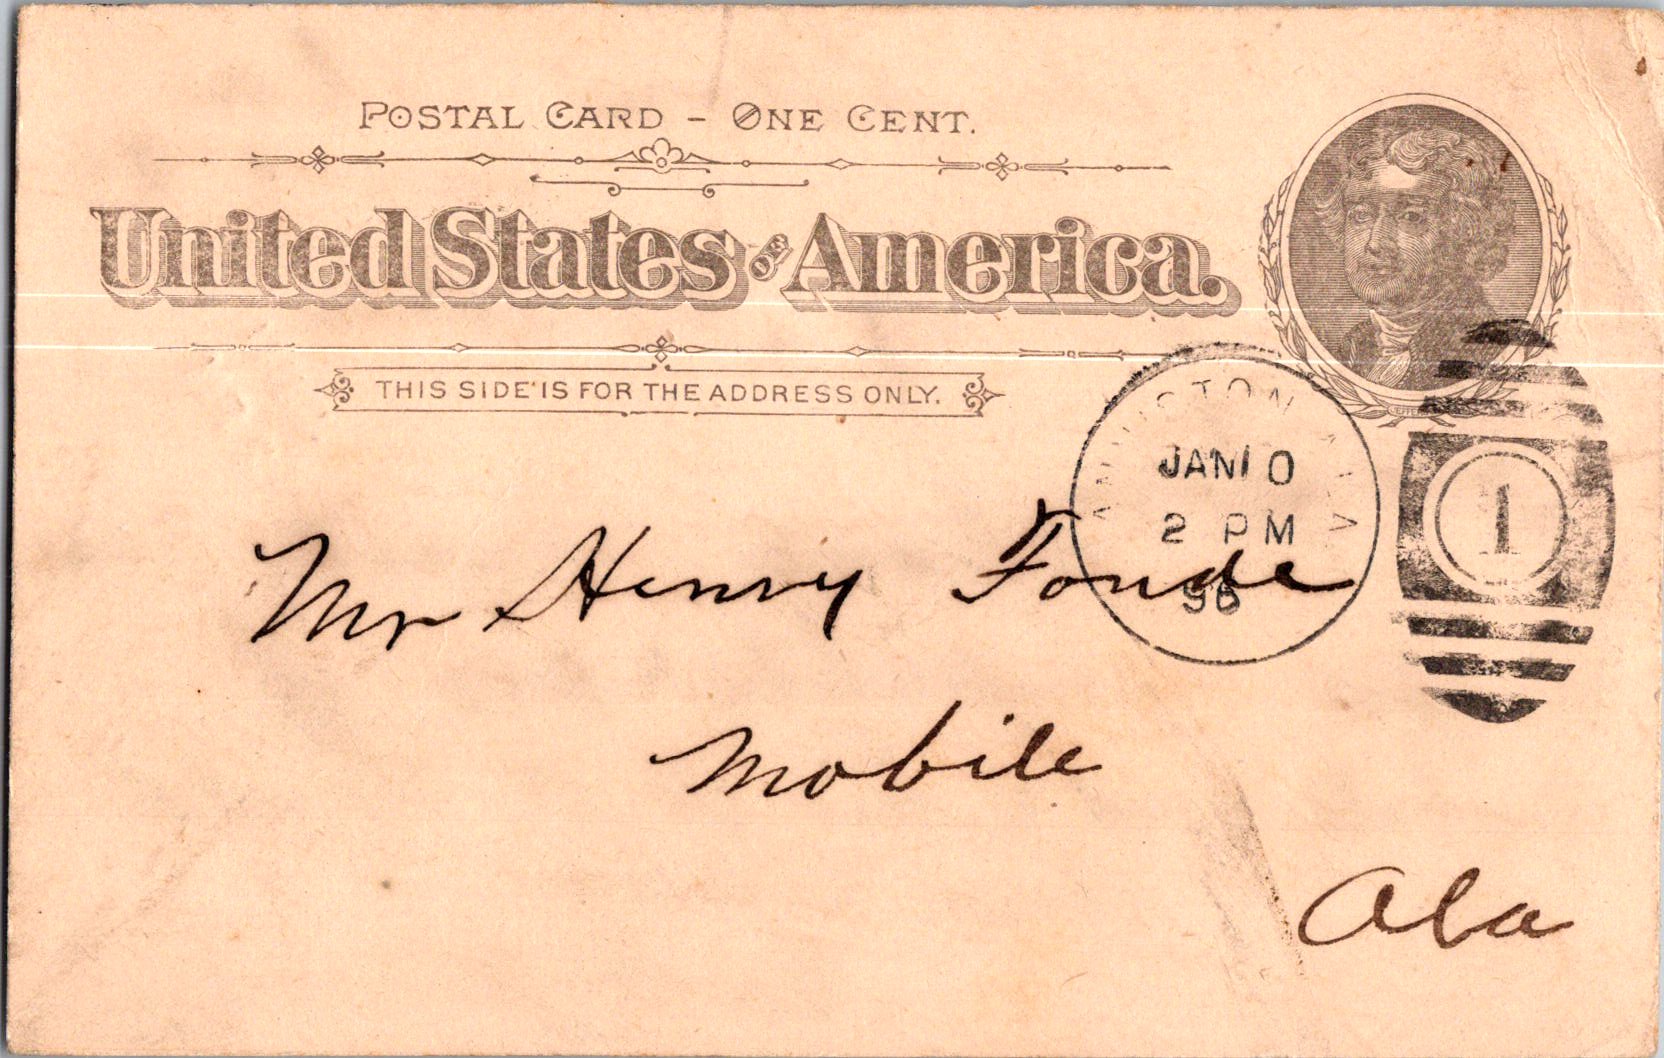 POSTAL CARD - ONE CENT.
United States OF America.
THIS SIDE IS FOR THE ADDRESS ONLY.
ANNISTON ALA
JAN 10
2 PM
96
1
Mr Henry Fonde
Mobile
Ala